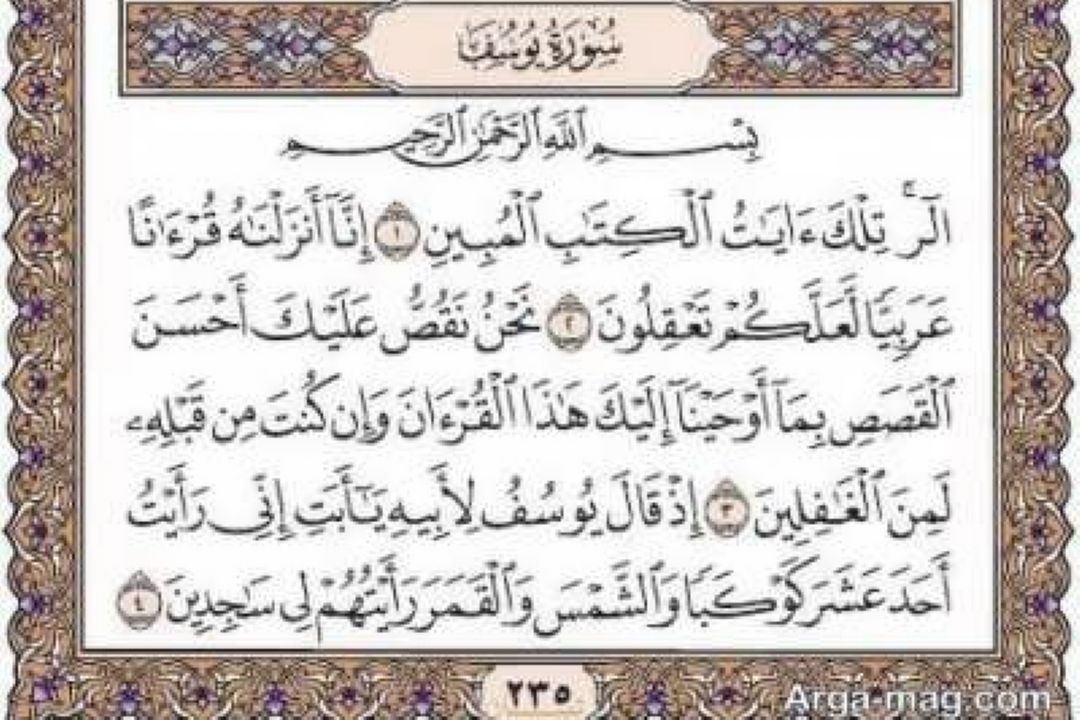 سُورَةُ يُوسُفَ
بِسْمِ ٱللَّهِ ٱلرَّحْمَٰنِ ٱلرَّحِيمِ
الٓرۚ تِلْكَ ءَايَٰتُ ٱلْكِتَٰبِ ٱلْمُبِينِ ١ إِنَّآ أَنزَلْنَٰهُ قُرْءَٰنًا
عَرَبِيًّا لَّعَلَّكُمْ تَعْقِلُونَ ٢ نَحْنُ نَقُصُّ عَلَيْكَ أَحْسَنَ
ٱلْقَصَصِ بِمَآ أَوْحَيْنَآ إِلَيْكَ هَٰذَا ٱلْقُرْءَانَ وَإِن كُنتَ مِن قَبْلِهِۦ
لَمِنَ ٱلْغَٰفِلِينَ ٣ إِذْ قَالَ يُوسُفُ لِأَبِيهِ يَٰٓأَبَتِ إِنِّي رَأَيْتُ
أَحَدَ عَشَرَ كَوْكَبًا وَٱلشَّمْسَ وَٱلْقَمَرَ رَأَيْتُهُمْ لِي سَٰجِدِينَ ٤
٢٣٥
Arga-mag.com